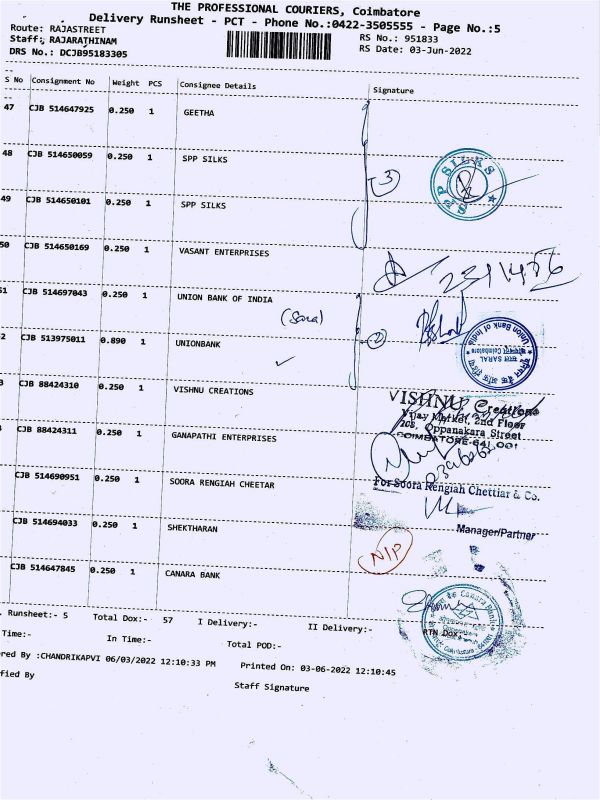 THE PROFESSIONAL COURIERS, Coimbatore
Delivery Runsheet - PCT - Phone No.:0422-3505555 - Page No.:5
Route: RAJASTREET
RS No.: 951833
Staff: RAJARATHINAM
RS Date: 03-Jun-2022
DRS No.: DCJB95183305
S No Consignment No Weight PCS Consignee Details Signature
47 CJB 514647925 0.250 1 GEETHA
48 CJB 514650059 0.250 1 SPP SILKS
3
S P P SILKS
49 CJB 514650101 0.250 1 SPP SILKS
50 CJB 514650169 0.250 1 VASANT ENTERPRISES
51 CJB 514697043 0.250 1 UNION BANK OF INDIA
2 CJB 513975011 0.890 1 UNIONBANK
2
Union Bank of India
SARAL
Coimbatore
3 CJB 88424310 0.250 1 VISHNU CREATIONS
VISHNU Creations
Vijay Market, 2nd Floor
208, Oppanakara Street
COIMBATORE-641 001
CJB 88424311 0.250 1 GANAPATHI ENTERPRISES
CJB 514690951 0.250 1 SOORA RENGIAH CHEETAR
For Soora Rengiah Chettiar & Co.
Manager/Partner
CJB 514694033 0.250 1 SHEKTHARAN
N/P
CJB 514647845 0.250 1 CANARA BANK
Canara Bank
. Runsheet:- 5 Total Dox:- 57 I Delivery:- II Delivery:- RTN Dox:-
Time:- In Time:- Total POD:-
red By :CHANDRIKAPVI 06/03/2022 12:10:33 PM Printed On: 03-06-2022 12:10:45
ified By
Staff Signature